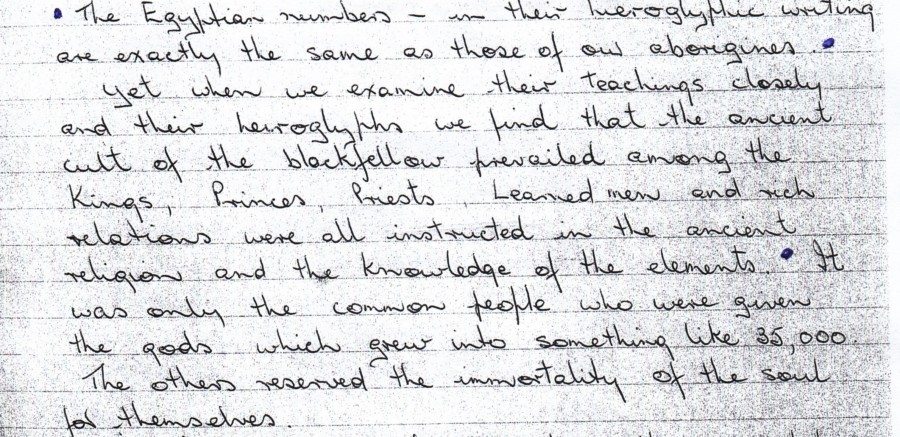 • The Egyptian numbers – in their hieroglyphic writing
are exactly the same as those of our aborigines. •
yet when we examine their teachings closely
and their heiroglyphs we find that the ancient
cult of the blackfellow prevailed among the
Kings, Princes, Priests, Learned men and rich
relations were all instructed in the ancient
religion and the knowledge of the elements. • It
was only the common people who were given
the gods which grew into something like 35,000.
The others reserved the immortality of the soul
for themselves.